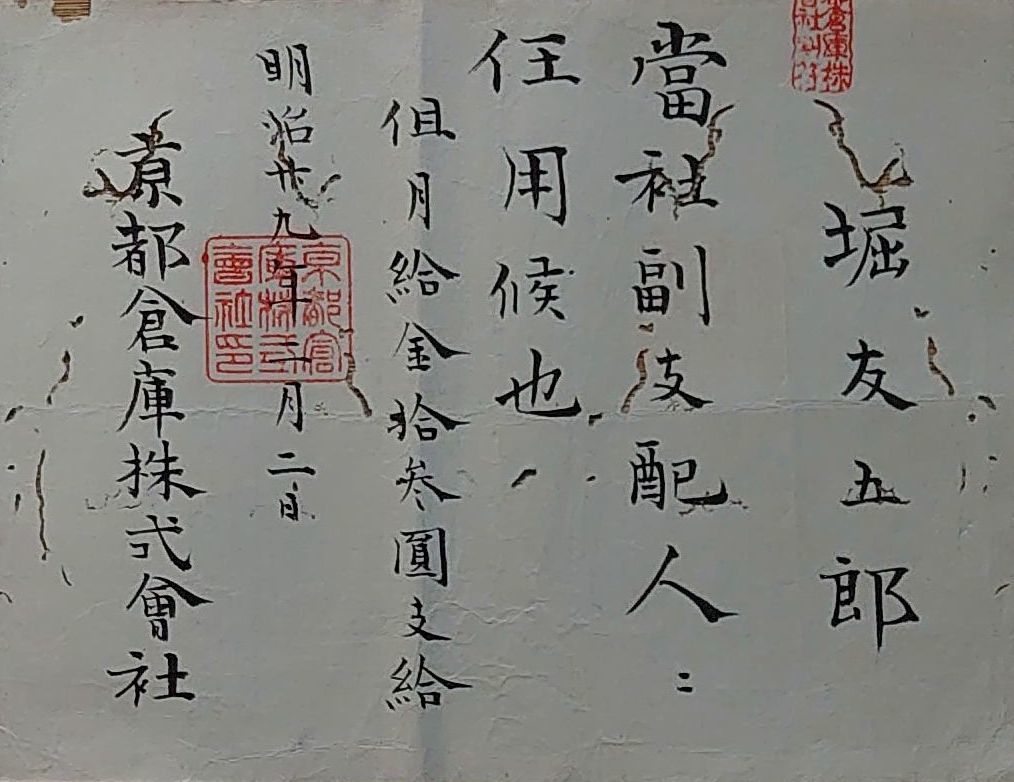 堀友五郎
當社副支配人ニ
任用候也
但月給金拾参圓支給
明治廿九年二月二日
京都倉庫株式會社
京都倉
庫株式
會社印